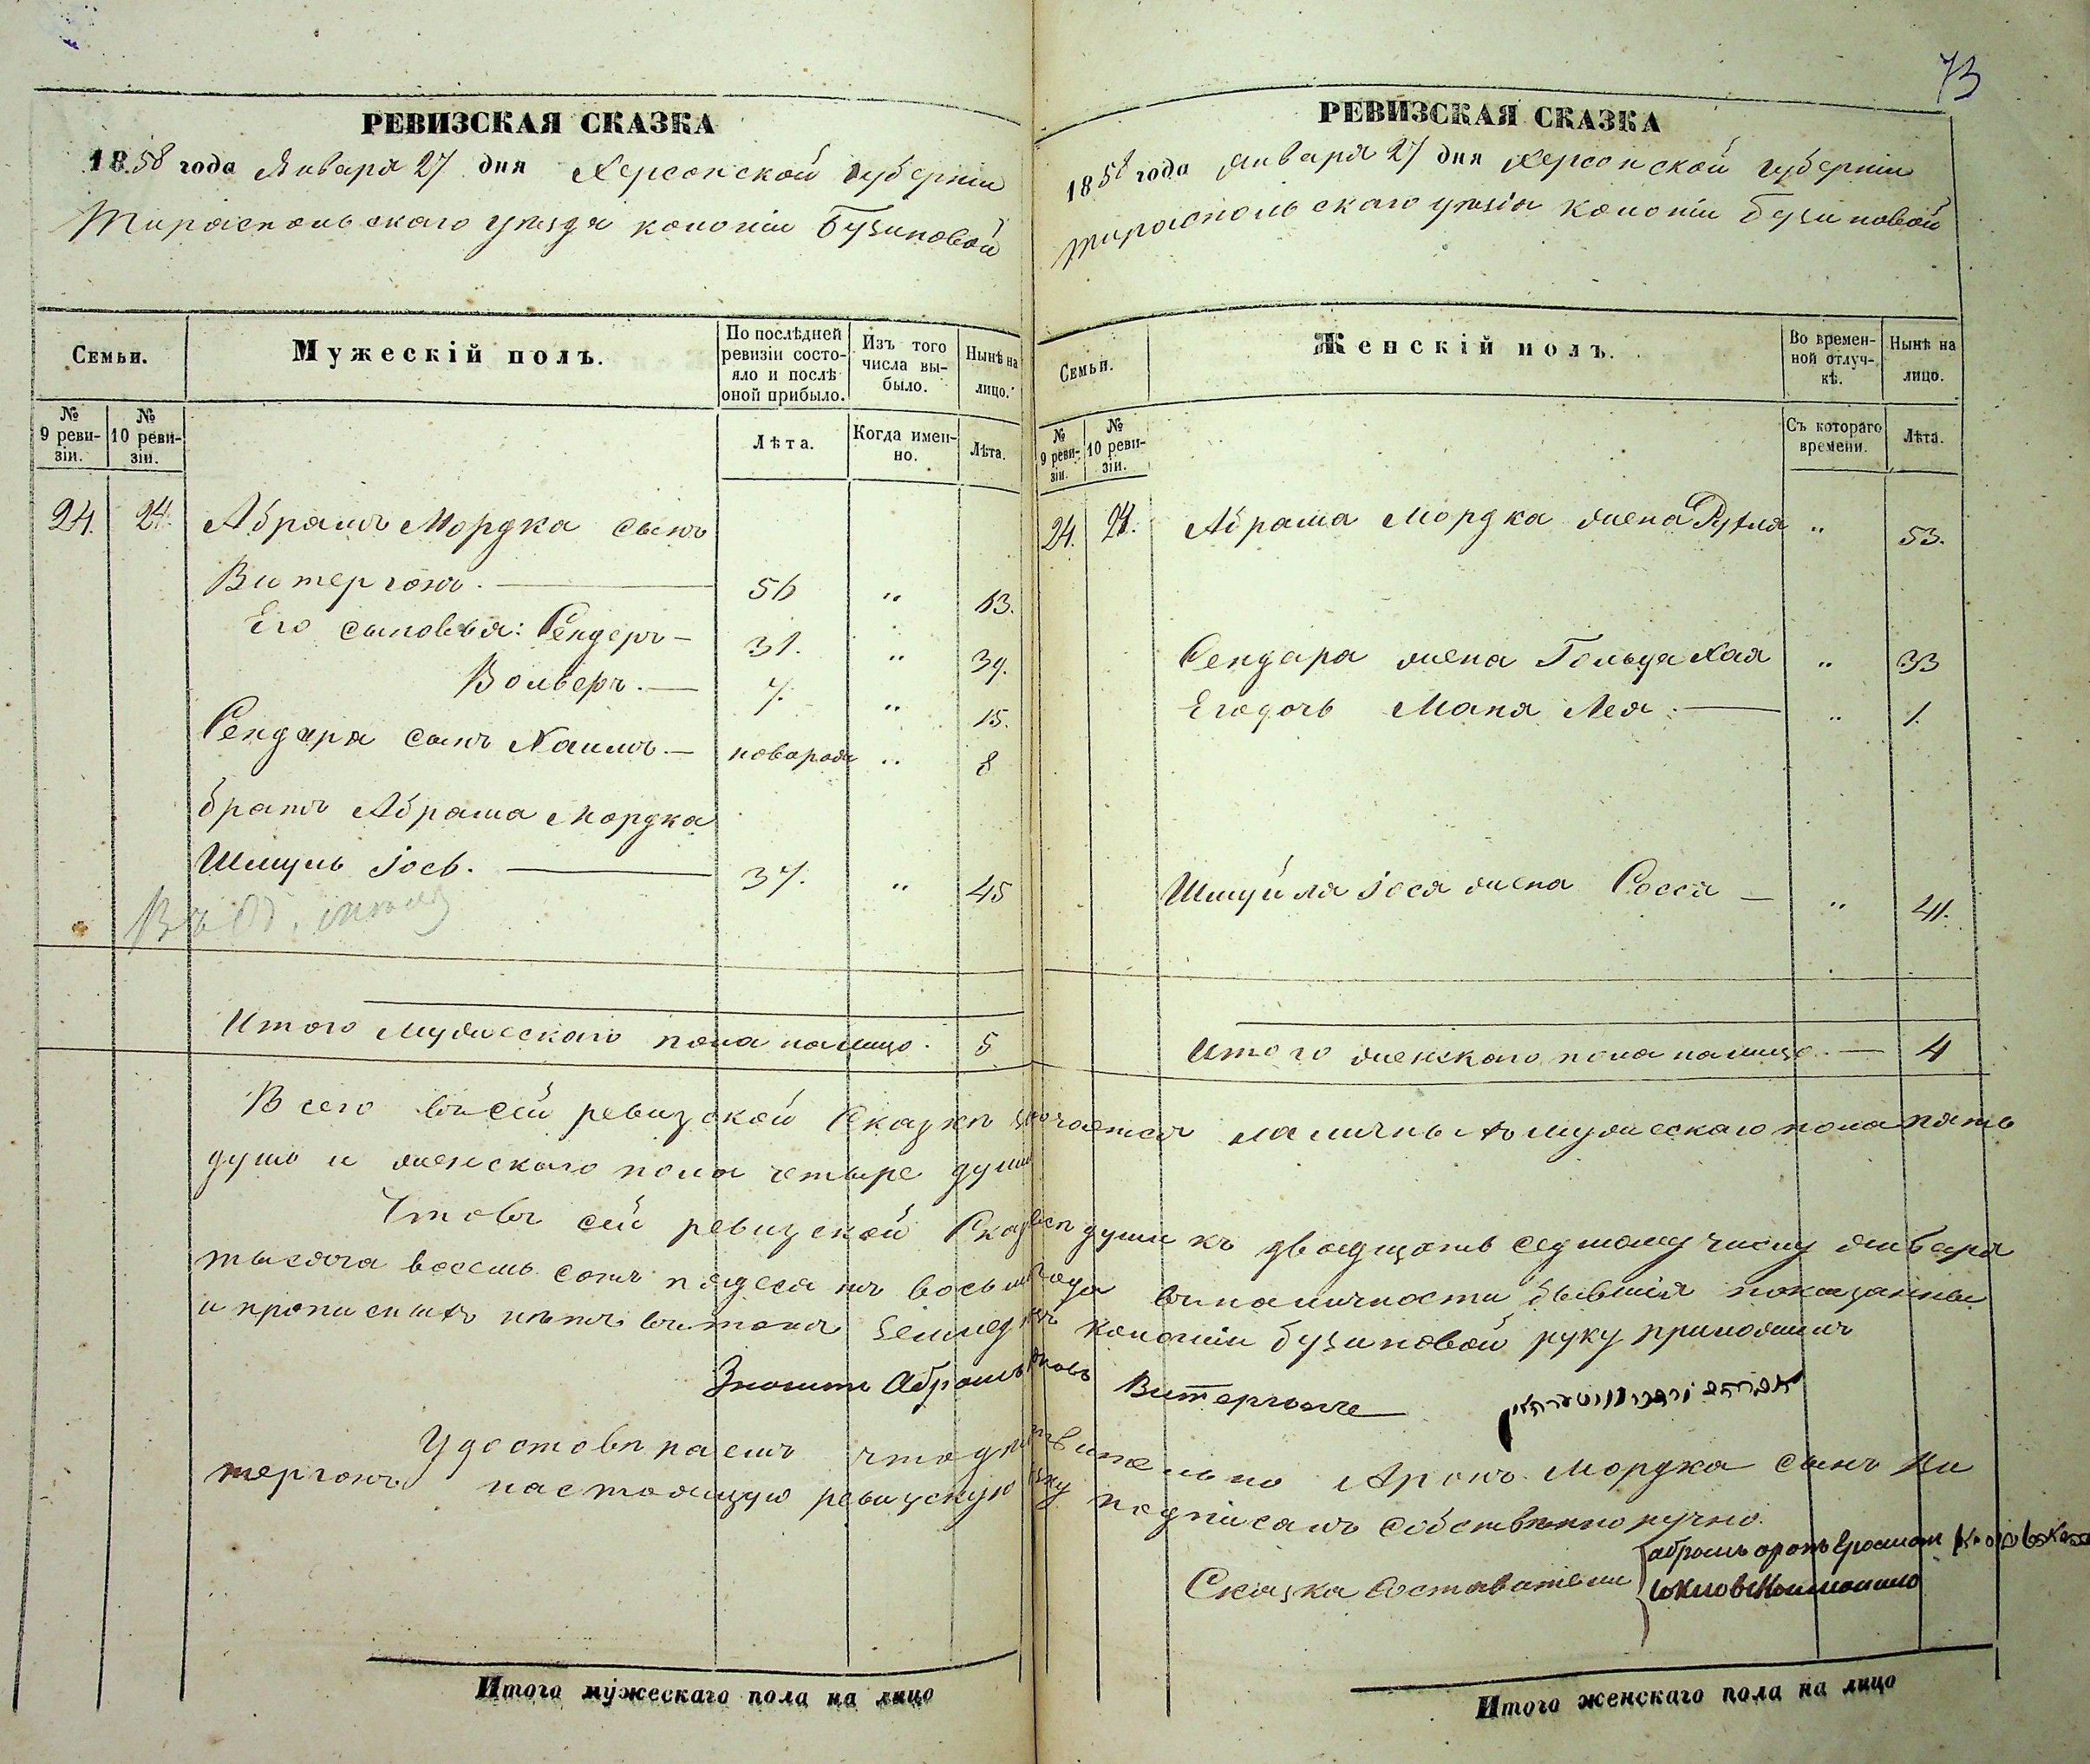 73
РЕВИЗСКАЯ СКАЗКА
1858 года Января 27 дня Херсонской губерніи
Тираспольскаго уѣзда колоніи Бузиновой
Семьи.
Мужескій полъ.
По послѣдней ревизіи состояло и послѣ оной прибыло.
Изъ того числа выбыло.
Нынѣ на лицо.
№ 9 ревизіи.
№ 10 ревизіи.
Лѣта.
Когда именно.
Лѣта.
24. 24. Абрамъ Мордка сынъ
Витергонъ. 56 " 63.
Его сыновья: Сендеръ 31. " 39.
Вольверъ. 7. " 15.
Сендера сынъ Хаимъ. новорожд " 8
братъ Абрама Мордка
Шмуль Іосъ. 37. " 45
Итого мужескаго пола налицо. 5
РЕВИЗСКАЯ СКАЗКА
1858 года Января 27 дня Херсонской губерніи
Тираспольскаго уѣзда колоніи Бузиновой
Семьи.
Женскій полъ.
Во временной отлучкѣ.
Нынѣ на лицо.
№ 9 ревизіи.
№ 10 ревизіи.
Съ котораго времени.
Лѣта.
24. 24. Абрама Мордка жена Рухля " 53.
Сендера жена Гольда Хая " 33
Его дочь Маня Лея. " 1.
Шмуйля Іося жена Росся " 41.
Итого женскаго пола налицо. 4
Всего въ сей ревизской Сказкѣ значается наличныхъ мужескаго пола пять
душъ и женскаго пола четыре души
Что въ сей ревизской Сказкѣ всѣ души къ двадцать седьмому числу января
тысяча восемь сотъ пядесятъ восьмаго года въ наличности бывшія показанны
и прописныхъ нѣтъ въ томъ колоніи бузиновой руку приложилъ
Абрамъ Витергонъ
Удостовѣраемъ что дѣйствительно Аронъ Мордка сынъ Ви
тергонъ настоящую ревизскую сказку подписалъ собственноручно.
Сказка Составители
Итого мужескаго пола на лицо
Итого женскаго пола на лицо